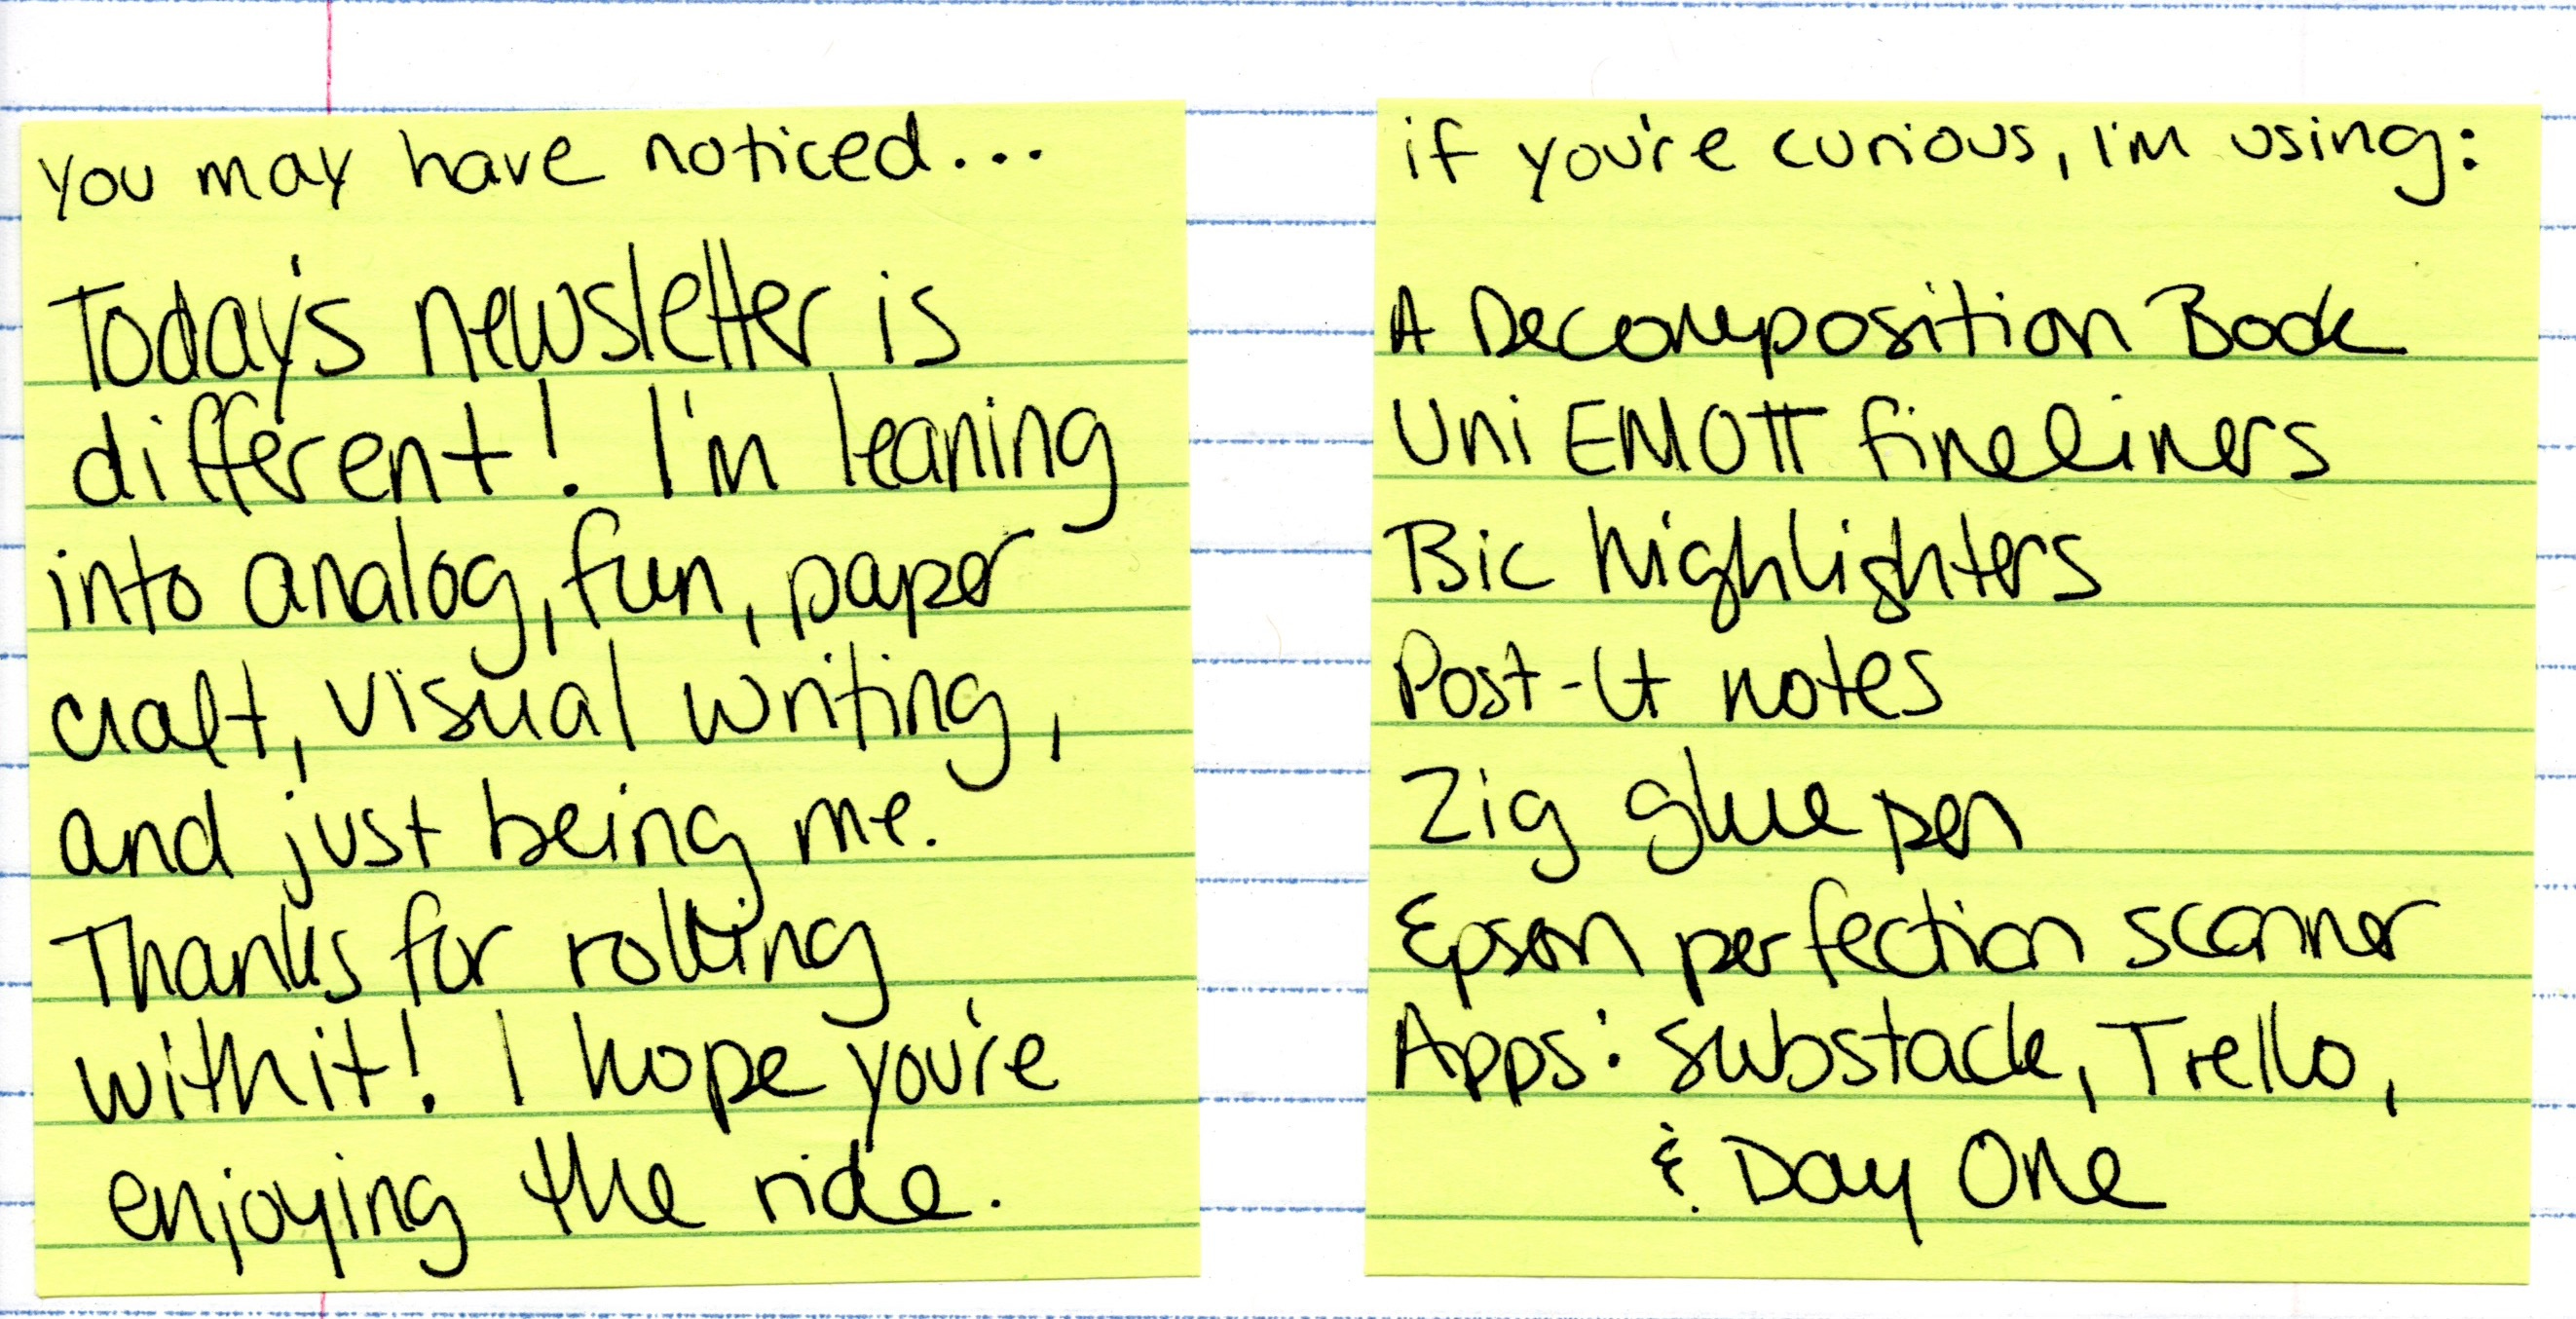 you may have noticed...
Today's newsletter is
different! I'm leaning
into analog, fun, paper
craft, visual writing,
and just being me.
Thanks for rolling
with it! I hope you're
enjoying the ride.
if you're curious, I'm using:
A Decomposition Book
Uni EMOTT fineliners
Bic highlighters
Post-It notes
Zig glue pen
Epson perfection scanner
Apps: Substack, Trello,
& Day One